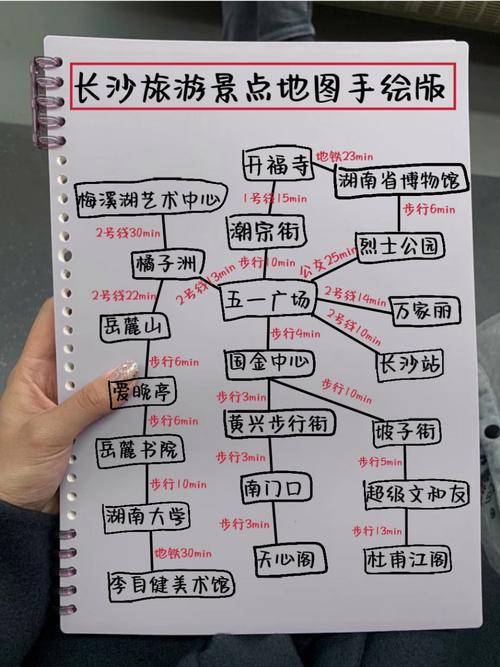 长沙旅游景点地图手绘版
开福寺
地铁23min
湖南省博物馆
梅溪湖艺术中心
1号线15min
步行6min
2号线30min
潮宗街
烈士公园
橘子洲
2号线13min
步行10min
公交25min
2号线22min
五一广场
2号线14min
万家丽
岳麓山
步行4min
2号线10min
步行6min
国金中心
长沙站
爱晚亭
步行3min
步行10min
步行6min
黄兴步行街
坡子街
岳麓书院
步行3min
步行5min
步行10min
南门口
超级文和友
湖南大学
步行3min
步行13min
地铁30min
天心阁
杜甫江阁
李自健美术馆